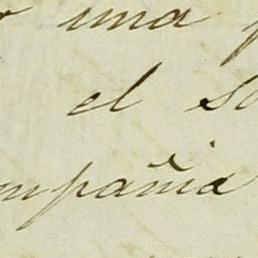 una
el
mpañia